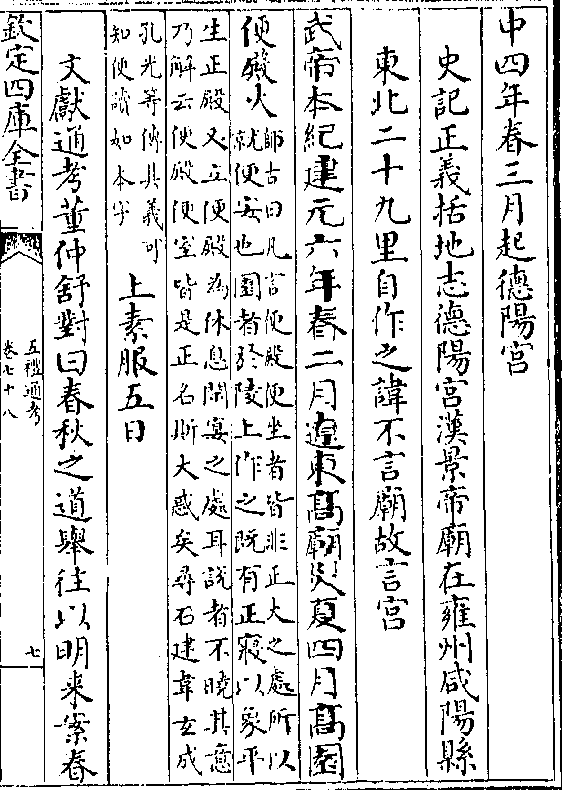 中四年春三月起德陽宮
史記正義括地志德陽宮漢景帝廟在雍州咸陽縣
東北二十九里自作之諱不言廟故言宮
武帝本紀建元六年春二月遼東高廟災夏四月高園
便殿火
師古曰凡言便殿便坐者皆非正大之處所以
就便安也園者於陵上作之既有正寢以象平
生正殿又立便殿為休息閒宴之處耳說者不曉其意
乃解云便殿便室皆是正名斯大惑矣尋石建韋玄成
孔光等傳其義可
知便讀如本字
上素服五日
文獻通考董仲舒對曰春秋之道舉往以明來案春
欽定四庫全書
五禮通考
卷七十八
七